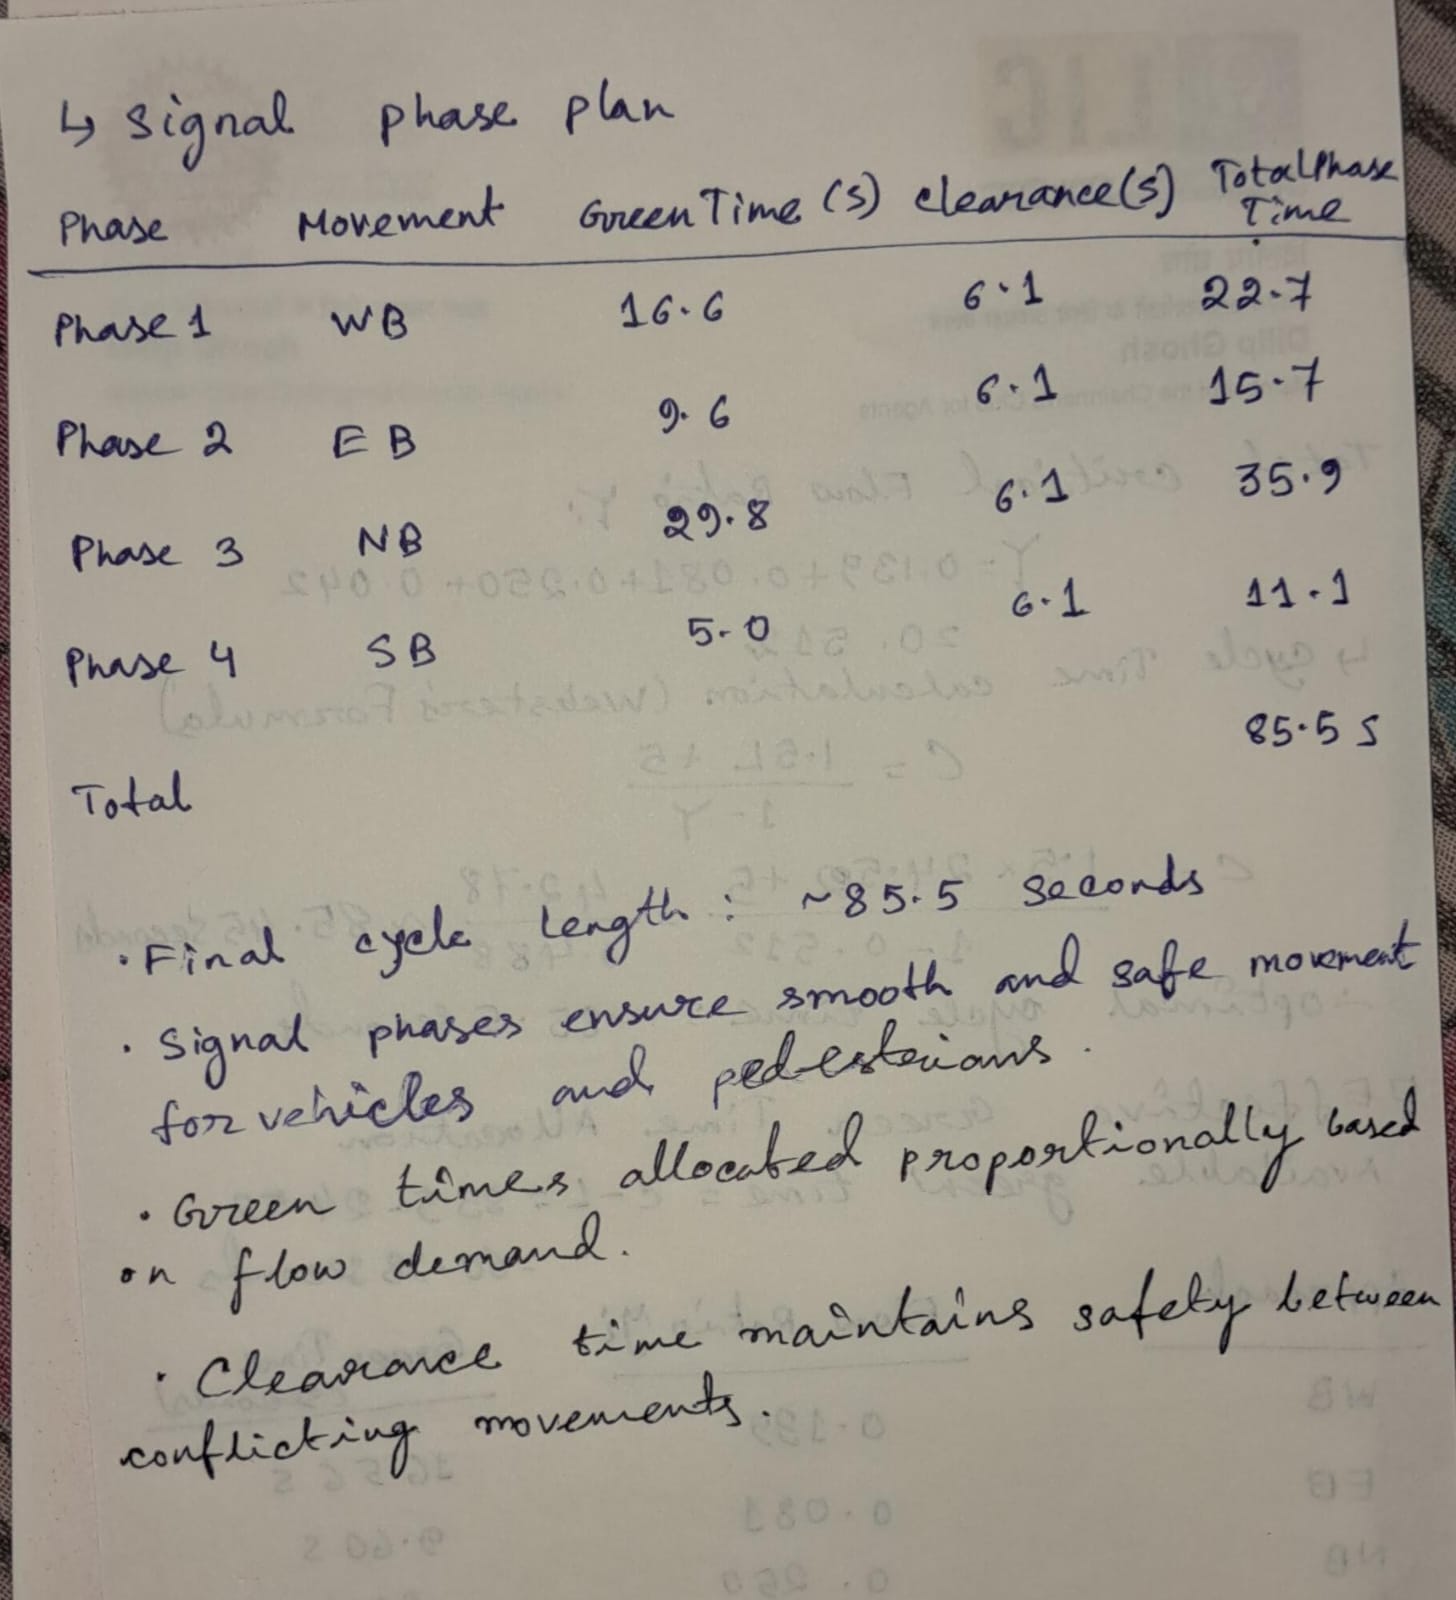 ↳ Signal phase plan
Phase Movement Green Time (s) clearance(s) Total Phase Time
Phase 1 WB 16.6 6.1 22.7
Phase 2 EB 9.6 6.1 15.7
Phase 3 NB 29.8 6.1 35.9
Phase 4 SB 5.0 6.1 11.1
85.5 s
Total
• Final cycle length : ~85.5 seconds
• Signal phases ensure smooth and safe movement
for vehicles and pedesterians.
• Green times allocated proportionally based
on flow demand.
• Clearance time maintains safety between
conflicting movements.